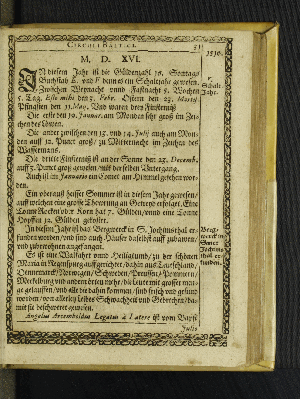 CIRCULI BALTICI. 51
M. D. XVI.
1516.
IN diesem Jahr ist die Güldenzahl 16. Sontags
Buchstab E. und ist ein Schaltjahr gewesen.
Zwischen Weynacht vnnd Faßnacht 5. Wochen
5. Tag. Esto mihi den 3. Febr. Ostern den 23. Martij
Pfingsten den 11. May. Vnd waren drey Finsternüß
Schalt-
Jahr.
Die erste den 19. Januar. am Monden sehr groß im Zei-
chen des Löwen.
Die ander zwischen den 13. vnd 14. Julij auch am Mon-
den auff 12. Punct groß / zu Mitternacht im Zeichen des
Wasserman̄s.
Die dritte Finsternüß ist an der Sonne den 23. Decemb.
auff 7. Punct groß gewesen / mit derselben Vntergang.
Auch ist im Januario ein Comet am Himmel gesehen wor-
den.
Ein oberauß heisser Sommer ist in diesem Jahr gewesen /
auff welchen eine grosse Thewrung an Getreyd erfolget. Eine
Tonne Rocken oder Korn hat 7. Gülden / vnnd eine Tonne
Hopffen 12. Gülden gekostet.
In diesem Jahr ist das Bergwerck in S. Jochimsthal er-
funden worden / vnd sind auch Häuser daselbst auff zubawen
vnd zubewohnen angefangen.
Bergwerck in
Sanct
Jochims
thal er-
funden.
Es ist eine Walfahrt vnnd Heiligthumb / zu der schönen
Maria in Regenspurg auffgerichtet / dahin auß Teutschland /
Dennemarck / Norwegen / Schweden / Preussen / Pommern /
Meckelburg vnd andern örten mehr / die Leute mit grosser man-
ge gelauffen / vnd alle die dahin kommen / sind frisch vnd gesund
worden / von allerley Leibes Schwachheit vnd Gebrechen / da-
mit sie beschweret gewesen.
Angelus Arcemboldus Legatus à Latere ist vom Papst
Julio